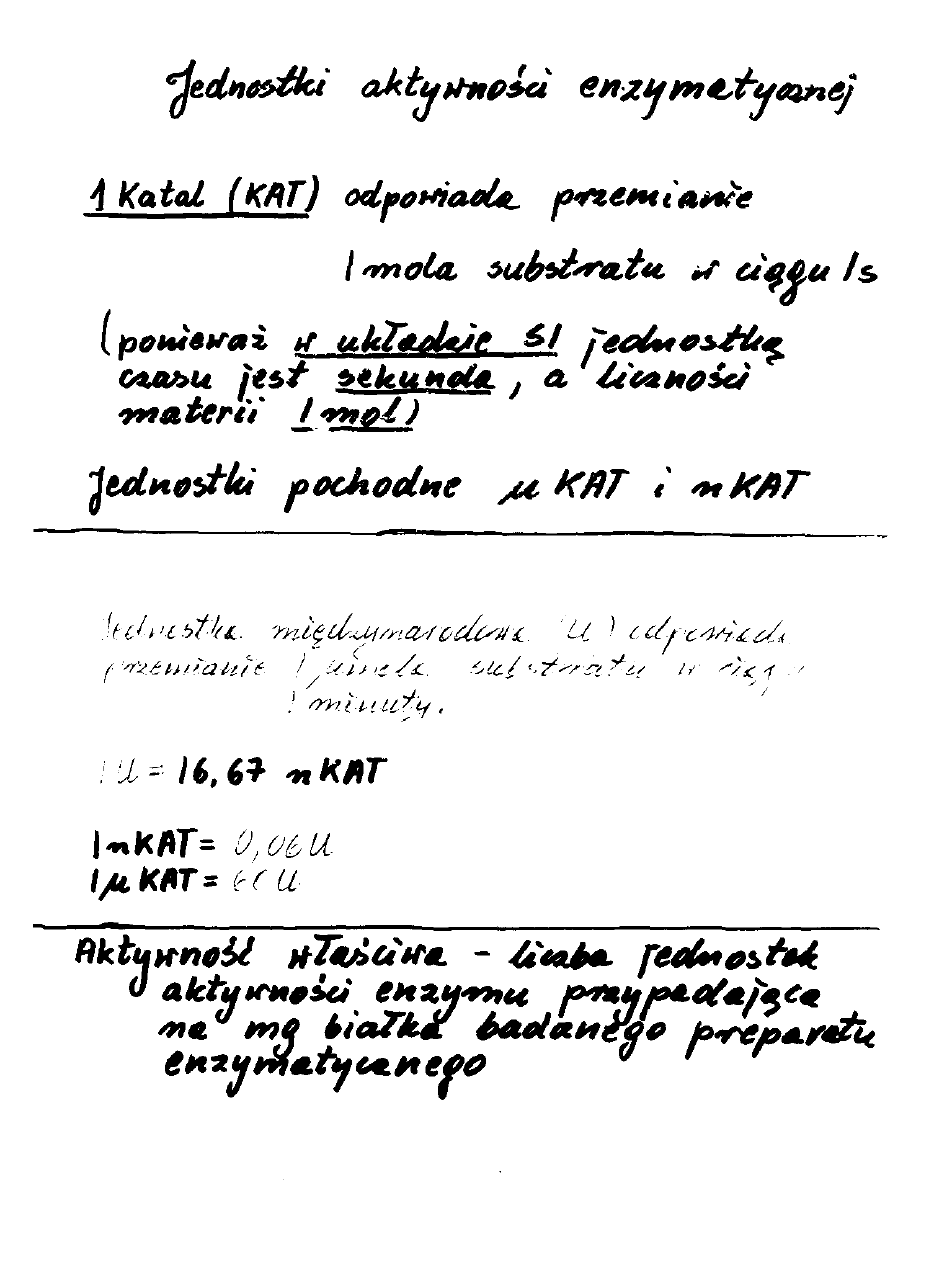 Jednostki aktywności enzymatycznej
1 Katal (KAT) odpowiada przemianie
1 mola substratu w ciągu 1s
(ponieważ w układzie SI jednostką
czasu jest sekunda, a liczności
materii 1 mol)
Jednostki pochodne μ KAT i n KAT
Jednostka międzynarodowa (U) odpowiada
przemianie 1 μmola substratu w ciągu
1 minuty.
1 U = 16,67 n KAT
1 n KAT = 0,06 U
1 μ KAT = 60 U
Aktywność właściwa - liczba jednostek
aktywności enzymu przypadająca
na mg białka badanego preparatu
enzymatycznego